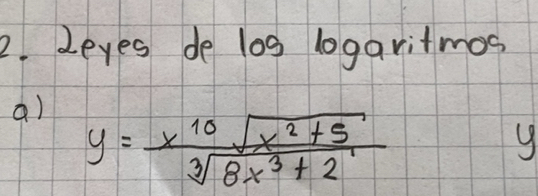 2. Leyes de los logaritmos
a) y = x^10 √(x^2 + 5) / ∛(8x^3 + 2) y